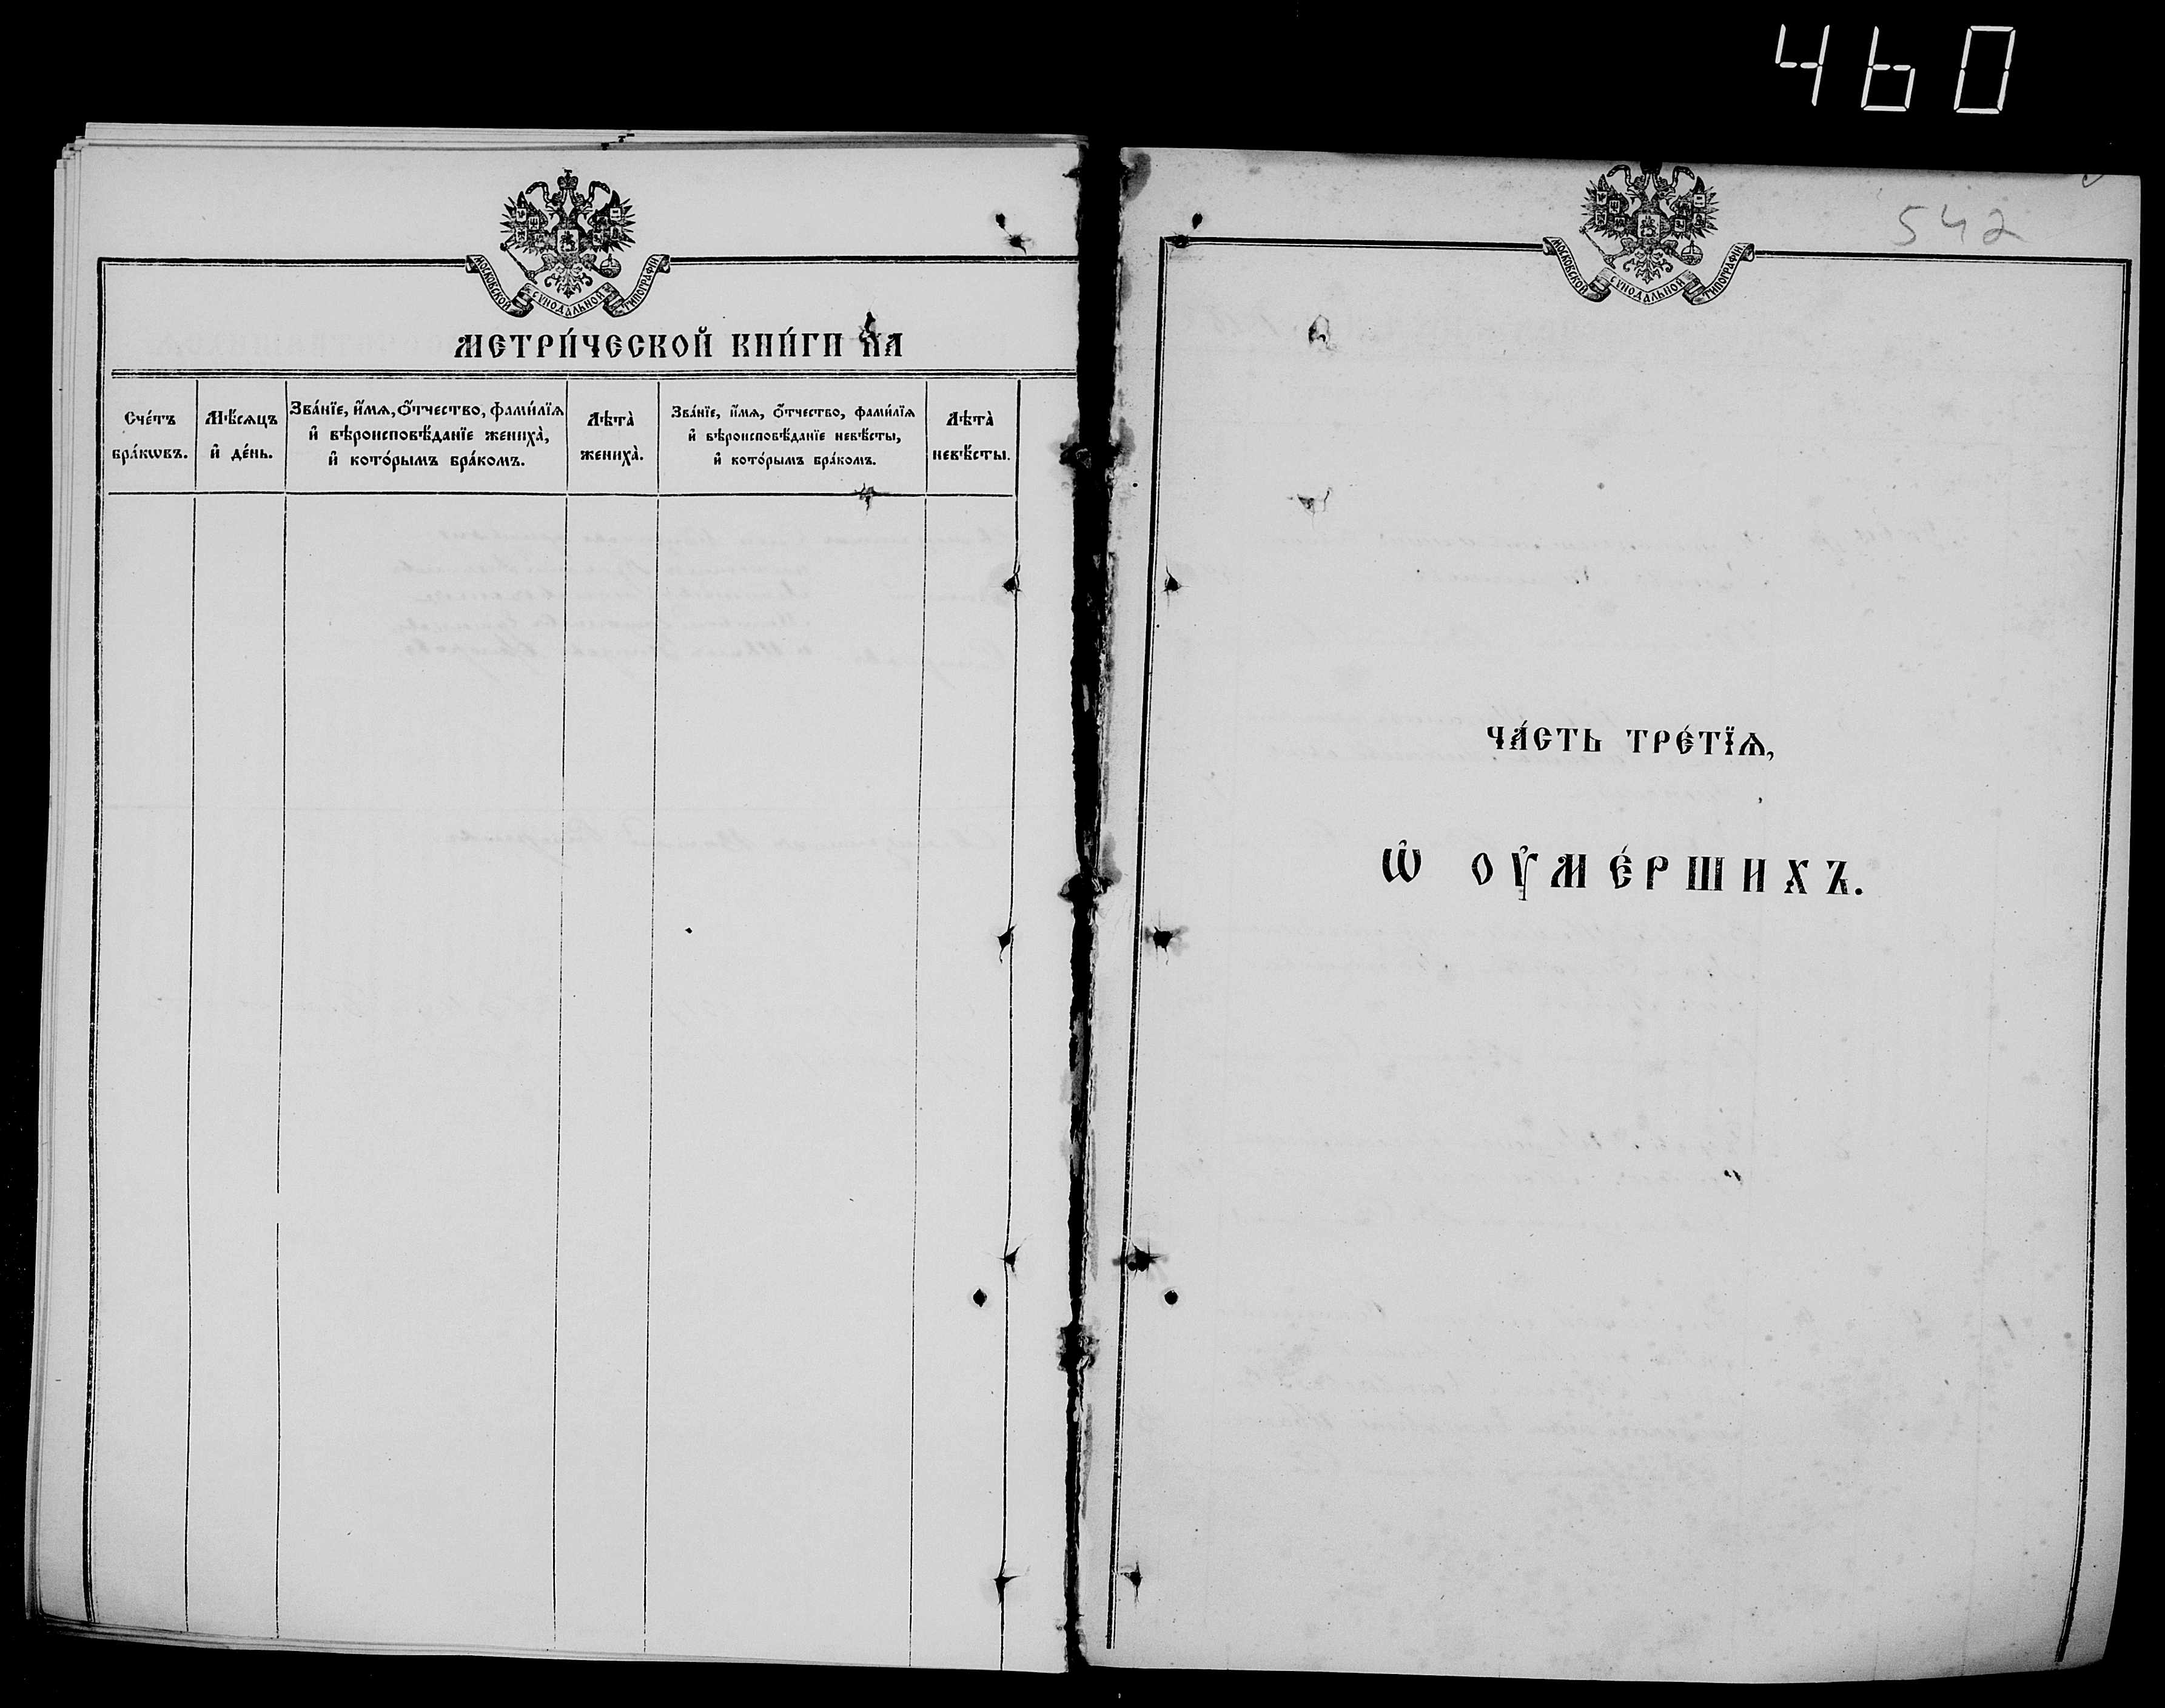 460
МОСКОВСКОЙ СѴНОДАЛЬНОЙ ТИПОГРАФІИ
МЕТРИ́ЧЕСКОЙ КНИ́ГИ НА
Сче́тъ
бра́кѡвъ.
Мѣ́сѧцъ
и҆ де́нь.
Зва́нїе, и҆́мѧ, ѻ҆́тчество, фами́лїѧ
и҆ вѣроисповѣ́данїе жениха̀,
и҆ кото́рымъ бра́комъ.
Лѣта̀
жениха̀.
Зва́нїе, и҆́мѧ, ѻ҆́тчество, фами́лїѧ
и҆ вѣроисповѣ́данїе невѣ́сты,
и҆ кото́рымъ бра́комъ.
Лѣта̀
невѣ́сты.
МОСКОВСКОЙ СѴНОДАЛЬНОЙ ТИПОГРАФІИ
542
ЧА́СТЬ ТРЕ́ТЇѦ,
Ѡ҆ ОУ҆МЕ́РШИХЪ.